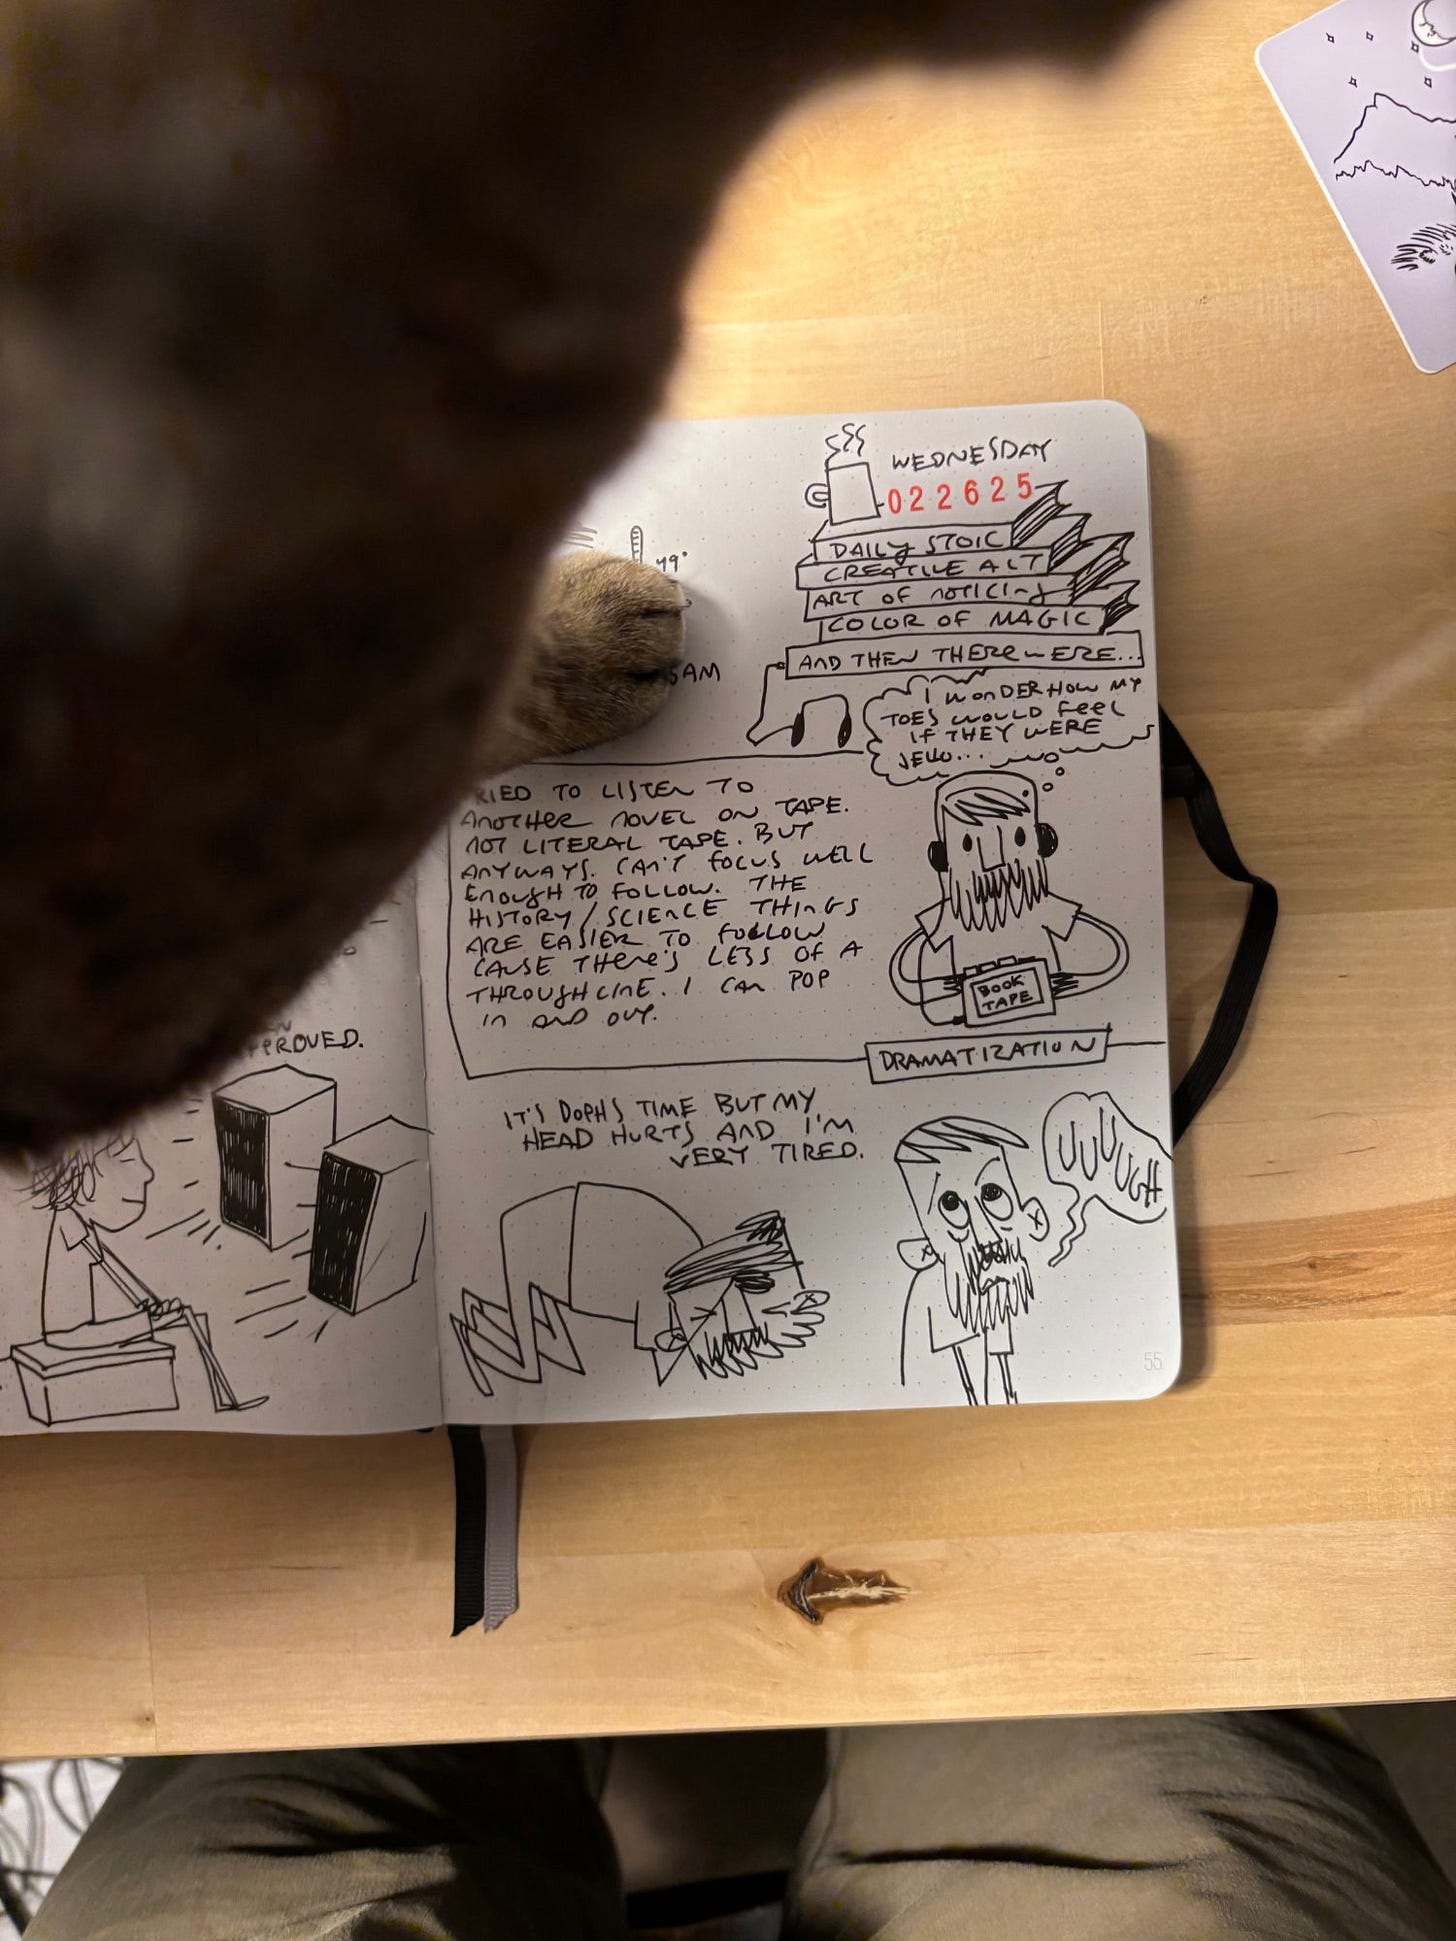 WEDNESDAY
022625
DAILY STOIC
CREATIVE ACT
ART OF NOTICING
COLOR OF MAGIC
AND THEN THERE WERE...
49°
5AM
I WONDER HOW MY
TOES WOULD FEEL
IF THEY WERE
JELLO...
TRIED TO LISTEN TO
ANOTHER NOVEL ON TAPE.
NOT LITERAL TAPE. BUT
ANYWAYS. CAN'T FOCUS WELL
ENOUGH TO FOLLOW. THE
HISTORY/SCIENCE THINGS
ARE EASIER TO FOLLOW
CAUSE THERE'S LESS OF A
THROUGHLINE. I CAN POP
IN AND OUT.
BOOK
TAPE
DRAMATIZATION
IT'S DOPH'S TIME BUT MY
HEAD HURTS AND I'M
VERY TIRED.
UUUUGH
55